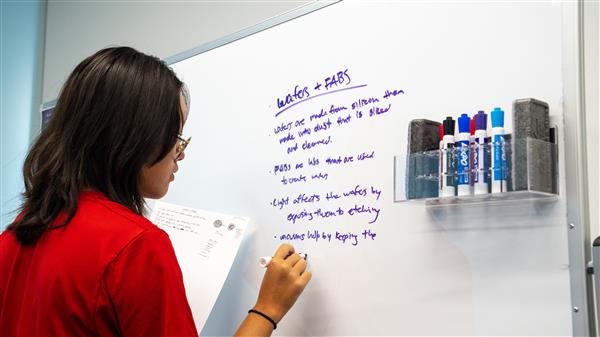 Wafers + FABS
· wafers are made from silicon then
made into dust that is sized
and cleaned.
· FABs are labs that are used
to create
· Light affects the wafers by
exposing them to etching
· vacuums help by keeping the
EXPO